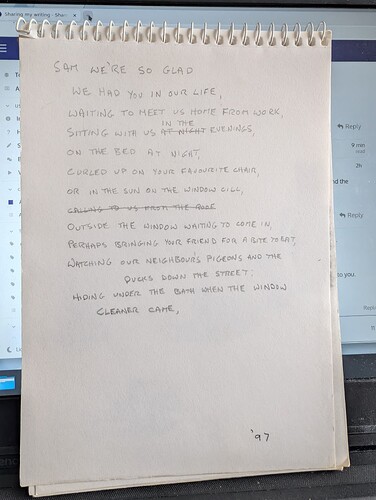 Sharing my writing - Shar
SAM WE'RE SO GLAD
WE HAD YOU IN OUR LIFE,
WAITING TO MEET US HOME FROM WORK,
IN THE
SITTING WITH US AT NIGHT EVENINGS,
ON THE BED AT NIGHT,
CURLED UP ON YOUR FAVOURITE CHAIR,
OR IN THE SUN ON THE WINDOW CILL,
CALLING TO US FROM THE ROOF
OUTSIDE THE WINDOW WAITING TO COME IN,
PERHAPS BRINGING YOUR FRIEND FOR A BITE TO EAT,
WATCHING OUR NEIGHBOUR'S PIGEONS AND THE
DUCKS DOWN THE STREET.
HIDING UNDER THE BATH WHEN THE WINDOW
CLEANER CAME,
'97
Reply
9 min
read
2h
d the
Reply
to you.